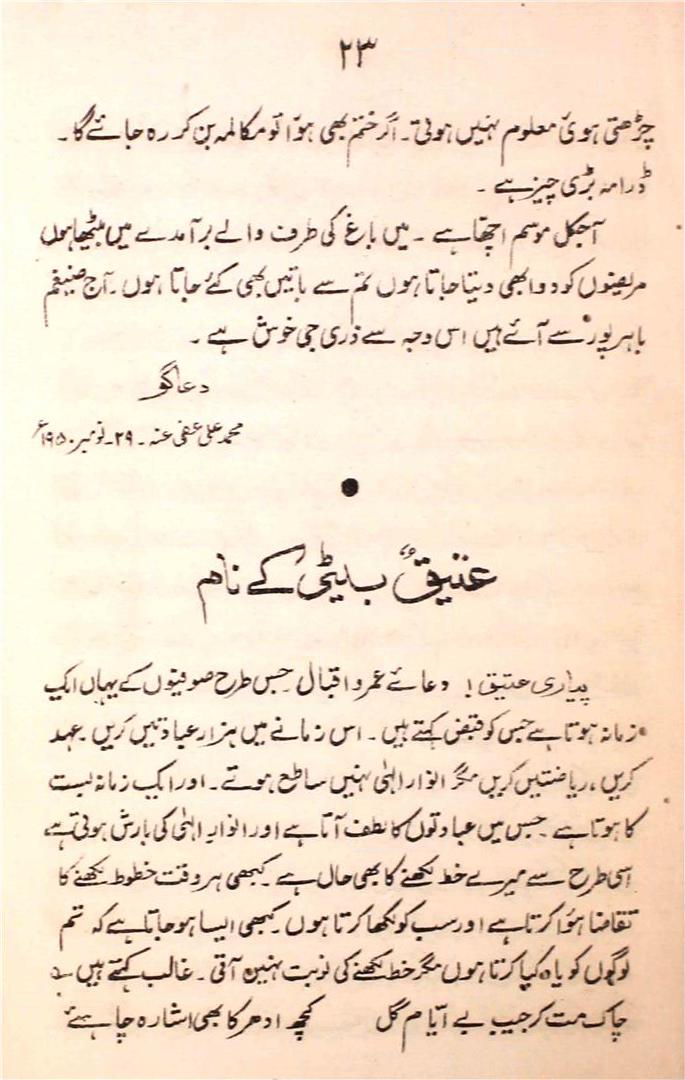 ۲۳
چڑھتی ہوئی معلوم نہیں ہوتی۔ اگر ختم بھی ہوا تو مکالمہ بن کر رہ جائے گا۔
ڈرامہ بڑی چیز ہے۔
آجکل موسم اچھا ہے۔ میں باغ کی طرف والے برآمدے میں بیٹھا ہوں
مریضوں کو دوا بھی دیتا جاتا ہوں تم سے باتیں بھی کئے جاتا ہوں۔ آج ضیغم
باہر پور سے آئے ہیں اس وجہ سے ذری جی خوش ہے۔
دعاگو
محمد علی عفی عنہ۔ ۲۹۔ نومبر ۱۹۵۰ء
عتیق بیٹی کے نام
پیاری عتیق! دعائے عمر و اقبال۔ جس طرح صوفیوں کے یہاں ایک
زمانہ ہوتا ہے جس کو قبض کہتے ہیں۔ اس زمانے میں ہزار عبادتیں کریں۔ جہد
کریں، ریاضتیں کریں مگر انوار الٰہی نہیں ساطع ہوتے۔ اور ایک زمانہ بست
کا ہوتا ہے۔ جس میں عبادتوں کا لطف آتا ہے اور انوارِ الٰہی کی بارش ہوتی ہے
اسی طرح سے میرے خط لکھنے کا بھی حال ہے۔ کبھی ہر وقت خطوط لکھنے کا
تقاضا ہؤا کرتا ہے اور سب کو لکھا کرتا ہوں۔ کبھی ایسا ہو جاتا ہے کہ تم
لوگوں کو یاد کیا کرتا ہوں مگر خط لکھنے کی نوبت نہیں آتی۔ غالب کہتے ہیں ؎
چاک مت کر جیب بے ایام گل کچھ ادھر کا بھی اشارہ چاہئے